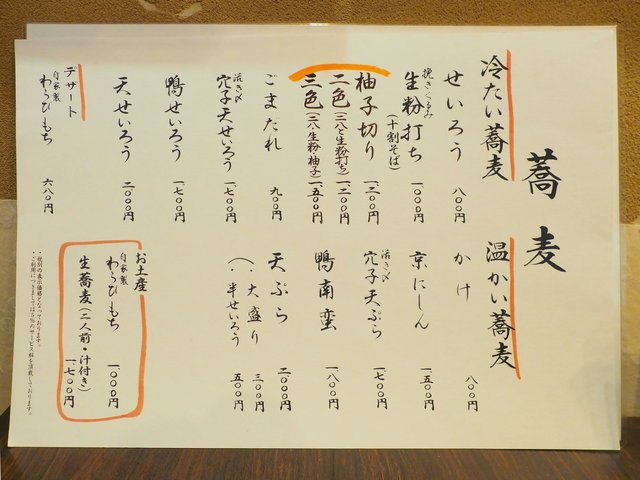 蕎麦
冷たい蕎麦
せいろう 八〇〇円
挽きぐるみ
生粉打ち(十割そば) 一、〇〇〇円
柚子切り 一、二〇〇円
二色(二八と生粉打ち) 一、二〇〇円
三色(二八・生粉・柚子) 一、五〇〇円
ごまだれ 九〇〇円
活き〆
穴子天せいろう 一、七〇〇円
鴨せいろう 一、七〇〇円
天せいろう 二、〇〇〇円
デザート
自家製
わらびもち 六八〇円
温かい蕎麦
かけ 八〇〇円
京にしん 一、五〇〇円
活き〆
穴子天ぷら 一、七〇〇円
鴨南蛮 一、八〇〇円
天ぷら 二、〇〇〇円
(・大盛り 三〇〇円
・半せいろう 五〇〇円
お土産
自家製
わらびもち 一、〇〇〇円
生蕎麦(二人前・汁付き) 一、七〇〇円
・税別の表示価格となっております。
・ご利用につきましては5%のサービス料を頂戴しております。